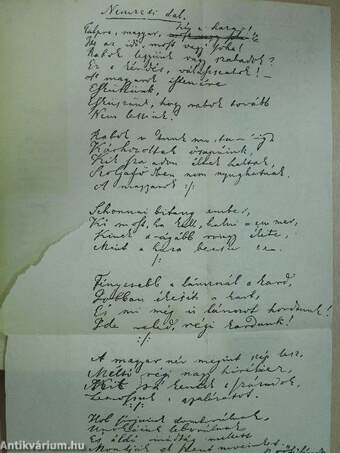 Nemzeti dal.
hí a haza!
Talpra, magyar,
Itt az idő, most vagy soha!
Rabok legyünk vagy szabadok?
Ez a kérdés, válasszatok! —
A magyarok istenére
Esküszünk,
Esküszünk, hogy rabok tovább
Nem leszünk!
Rabok voltunk mostanáig
Kárhozottak ősapáink,
Kik szabadon éltek haltak,
Szolgaföldben nem nyughatnak.
A magyarok :/:
Sehonnai bitang ember,
Ki most, ha kell, halni nem mer,
Kinek drágább rongy élete,
Mint a haza becsülete.
:/:
Fényesebb a láncnál a kard,
Jobban ékesíti a kart,
És mi még is láncot hordunk!
Ide veled, régi kardunk!
:/:
A magyar név megint szép lesz,
Méltó régi nagy híréhez,
Mit rá kentek a századok,
Lemossuk a gyalázatot.
:/:
Hol sírjaink domborulnak,
Unokáink leborulnak,
És áldó imádság mellett
Mondják el
Antikvárium.hu